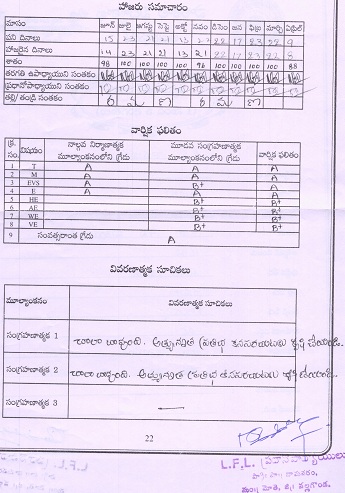 హాజరు సమాచారం
మాసం జూన్ జులై ఆగస్టు సెప్టె అక్టో నవం డిసెం జన ఫిబ్ర మార్చి ఏప్రిల్
పని దినాలు 15 23 21 21 13 22 17 23 22 9
హాజరైన దినాలు 14 23 21 21 13 21 22 17 23 22 8
శాతం 98 100 100 100 100 96 100 100 100 100 88
తరగతి ఉపాధ్యాయుని సంతకం
ప్రధానోపాధ్యాయుని సంతకం
తల్లి/ తండ్రి సంతకం
వార్షిక ఫలితం
క్ర. సం. విషయం నాల్గవ నిర్మాణాత్మక మూల్యాంకనంలోని గ్రేడు మూడవ సంగ్రహణాత్మక మూల్యాంకనంలోని గ్రేడు వార్షిక ఫలితం
1 T A A A
2 M A A A
3 EVS A B+ A
4 E A A A
5 HE B+ B+
6 AE B+ B+
7 WE B+ B+
8 VE B+ B+
9 సంవత్సరాంత గ్రేడు A
వివరణాత్మక సూచికలు
మూల్యాంకనం వివరణాత్మక సూచికలు
సంగ్రహణాత్మక 1 చాలా బాగుంది. అత్యున్నత ప్రతిభ కనబరచుటకు కృషి చేయండి.
సంగ్రహణాత్మక 2 చాలా బాగుంది. అత్యున్నత ప్రతిభ కనబరచుటకు కృషి చేయండి.
సంగ్రహణాత్మక 3 —
22
L.F.L.